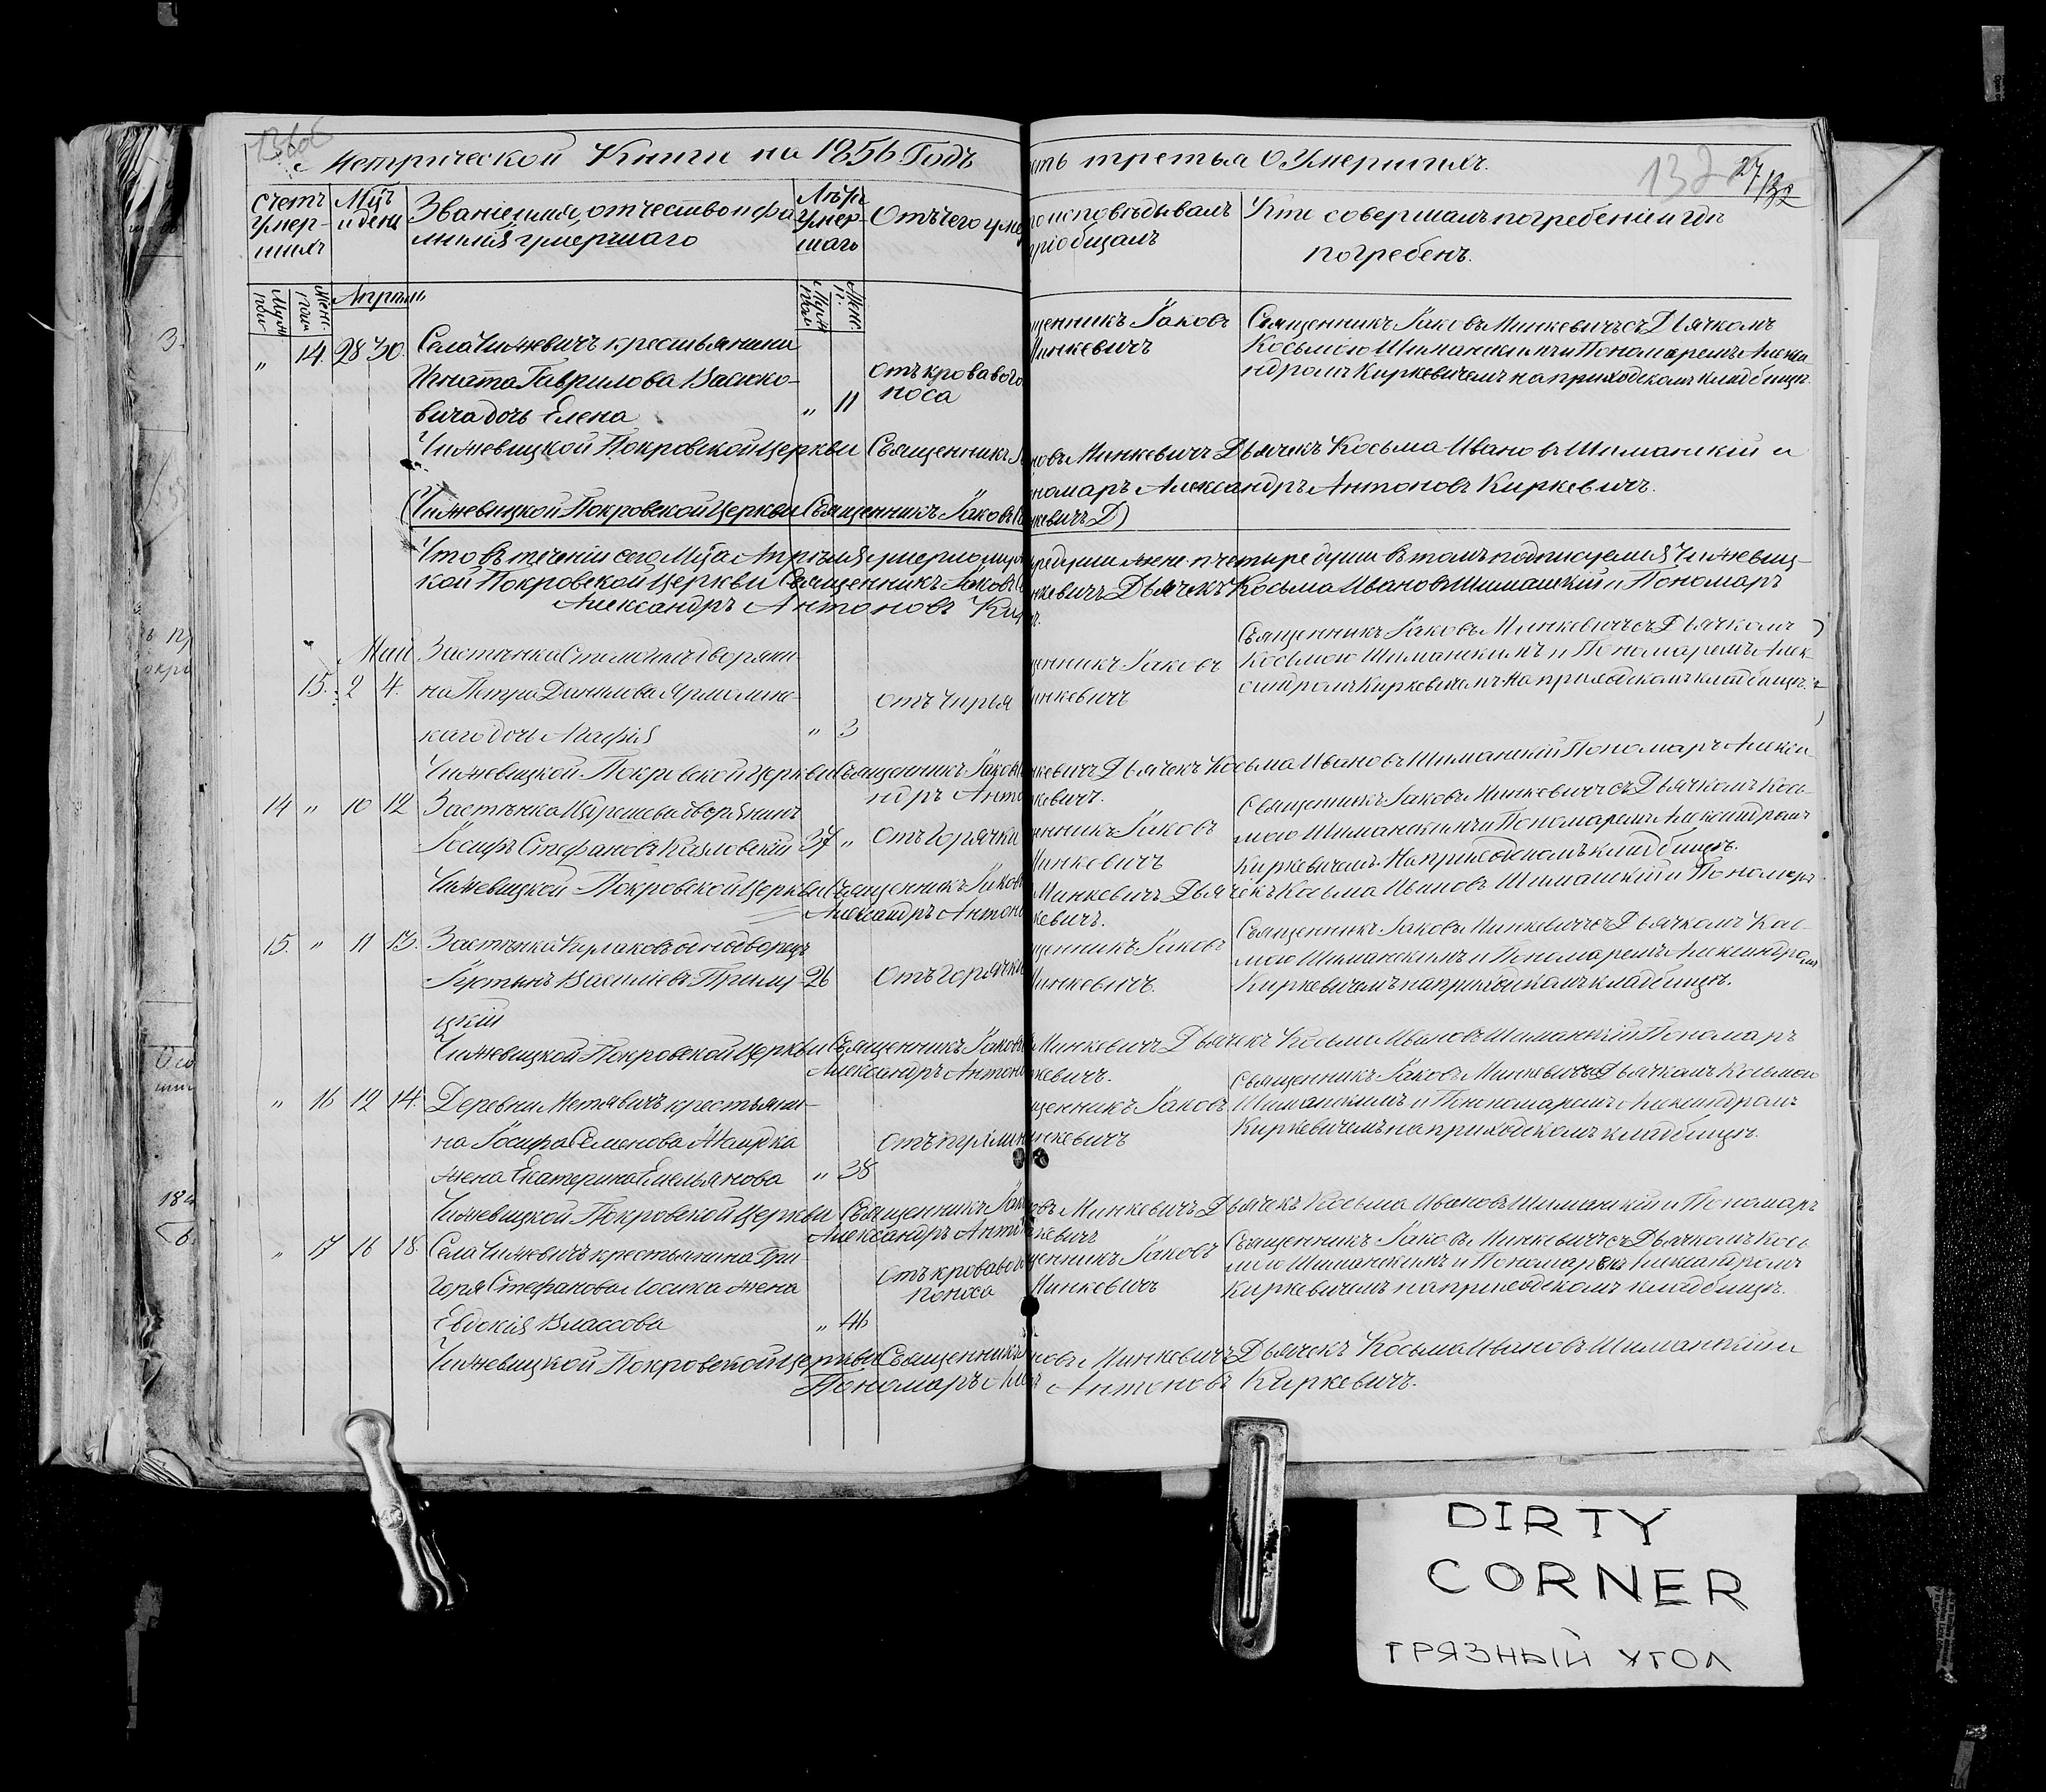 Метрической Книги на 1856 Годъ
ть третья О Умершихъ.
132
27
132
счетъ умер- шихъ
Мцъ и день
Званіе имя, отчество и фа- милія умершаго
Лѣтъ умер- шаго
Отъ чего уме
то исповѣдывалъ
пріобщалъ
Кто совершалъ погребеніе и гдѣ
погребенъ.
Апрѣль
" 14. 28 30. Села Чижевичъ крестьянина
Игната Гаврилова Васюко-
вича дочь Елена " 11
отъ кроваваго
носа
щенникъ Іаковъ
Минкевичъ
Священникъ Іаковъ Минкевичъ съ Дьячкомъ
Косьмою Шиманскимъ и Пономаремъ Алекса
ндромъ Киркевичемъ на приходскомъ кладбищѣ.
Чижевицкой Покровской Церкви Священникъ
ковъ Минкевичъ Дьячекъ Косьма Ивановъ Шиманскій и
номаръ Александръ Антоновъ Киркевичъ.
(Чижевицкой Покровской Церкви Священникъ Іаковъ
кевичъ Д)
Что въ теченіи сего Мца Апрѣля умерло
души въ томъ подписуемся Чижевиц-
кой Покровской Церкви Священникъ Іаковъ
нкевичъ Дьячекъ Косьма Ивановъ Шиманскій и Пономаръ
Александръ Антоновъ Ки
Май
15. 2 4. Застѣнка дворяни-
на Петра Данилова Ярмолинс-
каго дочь Агафія " 3
отъ чирья
щенникъ Іаковъ
инкевичъ
Священникъ Іаковъ Минкевичъ съ Дьячкомъ
Косьмою Шиманскимъ и Пономаремъ Алек-
сандромъ Киркевичемъ на приходскомъ кладбищѣ.
Чижевицкой Покровской Церкви Священникъ Іаковъ
нкевичъ Дьячекъ Косьма Ивановъ Шиманскій Пономаръ Алекса
ндръ Анто
кевичъ.
14 " 10 12 Застѣнка дворянинъ
Іосифъ Стефановъ Казловскій 37 "
отъ Горячки
щенникъ Іаковъ
Минкевичъ
Священникъ Іаковъ Минкевичъ съ Дьячкомъ Кось-
мою Шиманскимъ и Пономаремъ Александромъ
Киркевичемъ На приходскомъ кладбищѣ.
Чижевицкой Покровской Церкви Священникъ Іаковъ
Минкевичъ Дьячекъ Косьма Ивановъ Шиманскій и Пономаръ
Александръ Антоно
кевичъ.
15. " 11 13. Застѣнка однодворецъ
Іустинъ Василіевъ Прилу- 26
цкій
отъ горячки
щенникъ Іаковъ
Минкевичъ.
Священникъ Іаковъ Минкевичъ съ Дьячкомъ Кос-
мою Шиманскимъ и Пономаремъ Александромъ
Киркевичемъ на приходскомъ кладбищѣ.
Чижевицкой Покровской Церкви Священникъ Іаковъ
Минкевичъ Дьячекъ Косьма Ивановъ Шиманскій Пономаръ
Александръ Антоно
кевичъ.
" 16 12 14. Деревни Метявичъ крестьяни-
на Іосифа Семенова
жена Екатерина Емельянова " 38
щенникъ Іаковъ
инкевичъ
Священникъ Іаковъ Минкевичъ съ Дьячкомъ Косьмою
Шиманскимъ и Понономаремъ Александромъ
Киркевичемъ на приходскомъ кладбищѣ.
Чижевицкой Покровской Церкви Священникъ Іак
овъ Минкевичъ Дьячекъ Косьма Ивановъ Шиманскій и Пономаръ
Александръ Анто
кевичъ
" 17 16 18. Села Чижевичъ крестьянина Гри-
горя Стефанова Лосика жена
Евдокія Влассова " 46
отъ кроваваго
поноса
щенникъ Іаковъ
Минкевичъ
Священникъ Іаковъ Минкевичъ съ Дьячкомъ Кось
мою Шиманскимъ и Пономаремъ Александромъ
Киркевичемъ на приходскомъ кладбищѣ.
Чижевицкой Покровской Церкви Священникъ
ковъ Минкевичъ Дьячекъ Косьма Ивановъ Шиманскій и
Пономаръ Але
Антоновъ Киркевичъ.
DIRTY
CORNER
ГРЯЗНЫЙ УГОЛ